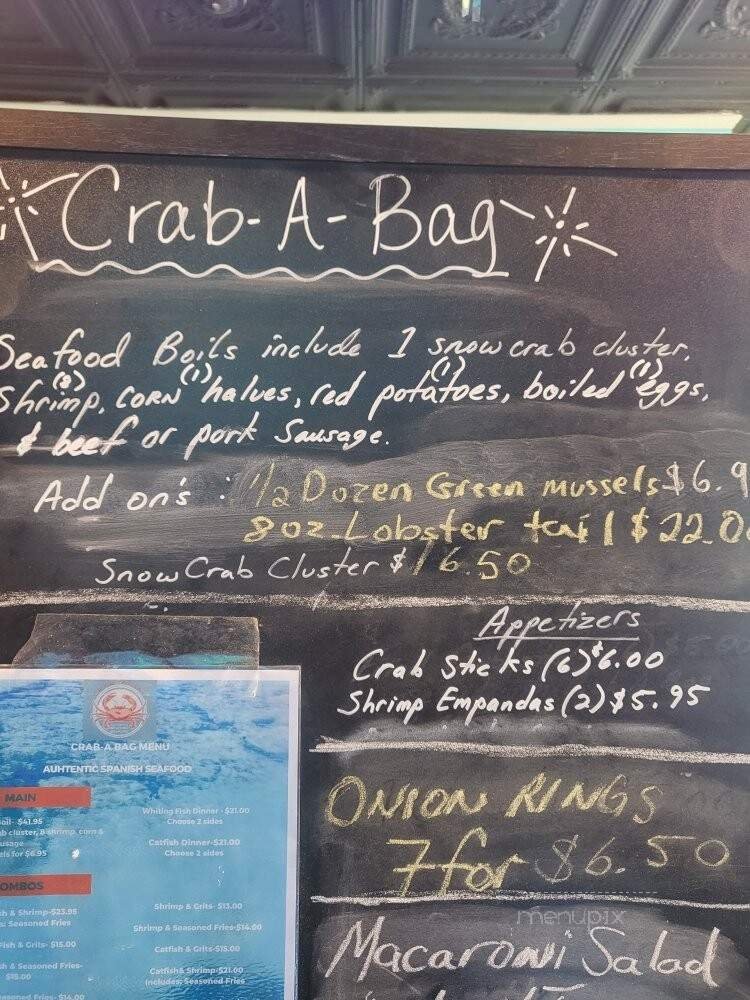 Crab-A-Bag
Seafood Boils include 1 snow crab cluster,
(8) (1) (1) (1)
Shrimp, CORN halves, red potatoes, boiled eggs,
& beef or pork Sausage.
Add on's : 1/2 Dozen Green mussels $6.9
8oz. Lobster tail $22.0
Snow Crab Cluster $16.50
Appetizers
Crab Sticks (6) $6.00
Shrimp Empandas (2) $5.95
ONION RINGS
7 for $6.50
Macaroni Salad
CRAB-A BAG MENU
AUHTENTIC SPANISH SEAFOOD
MAIN
oil- $41.95
b cluster, 8 shrimp, corn &
usage
els for $6.95
OMBOS
sh & Shrimp-$23.95
s: Seasoned Fries
Fish & Grits- $15.00
h & Seasoned Fries-
$15.00
asoned Fries- $14.00
Whiting Fish Dinner - $21.00
Choose 2 sides
Catfish Dinner-$21.00
Choose 2 sides
Shrimp & Grits- $13.00
Shrimp & Seasoned Fries-$14.00
Catfish & Grits-$15.00
Catfish & Shrimp-$21.00
(includes: Seasoned Fries
menupix